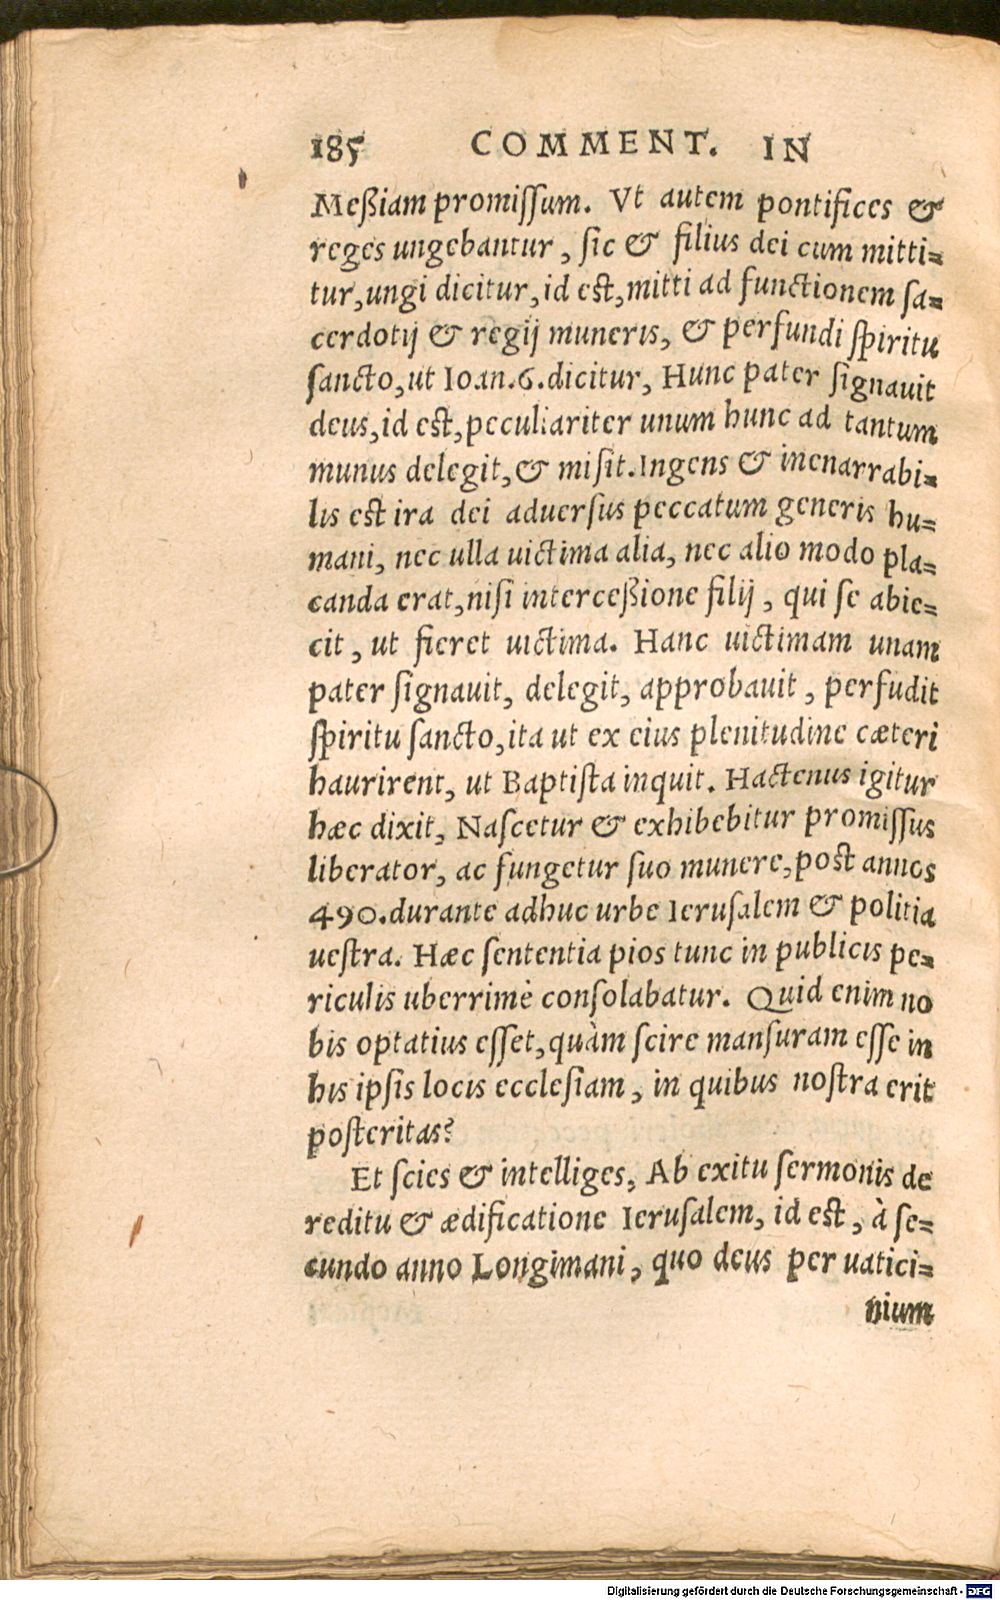 185 COMMENT. IN
Meßiam promiſſum. Vt autem pontifices &
reges ungebantur, ſic & filius dei cum mitti=
tur, ungi dicitur, id eſt, mitti ad functionem ſa=
cerdotij & regij muneris, & perfundi ſpiritu
ſancto, ut Ioan.6.dicitur, Hunc pater ſignauit
deus, id eſt, peculiariter unum hunc ad tantum
munus delegit, & miſit. Ingens & inenarrabi=
lis eſt ira dei aduerſus peccatum generis hu=
mani, nec ulla uictima alia, nec alio modo pla=
canda erat, niſi interceßione filij, qui ſe abie=
cit, ut fieret uictima. Hanc uictimam unam
pater ſignauit, delegit, approbauit, perfudit
ſpiritu ſancto, ita ut ex eius plenitudine cæteri
haurirent, ut Baptiſta inquit. Hactenus igitur
hæc dixit, Naſcetur & exhibebitur promiſſus
liberator, ac fungetur ſuo munere, poſt annos
490. durante adhuc urbe Ieruſalem & politia
ueſtra. Hæc ſententia pios tunc in publicis pe=
riculis uberrimè conſolabatur. Quid enim no
bis optatius eſſet, quàm ſcire manſuram eſſe in
his ipſis locis eccleſiam, in quibus noſtra erit
poſteritas?
Et ſcies & intelliges, Ab exitu ſermonis de
reditu & ædificatione Ieruſalem, id eſt, à ſe=
cundo anno Longimani, quo deus per uatici=
nium
Digitalisierung gefördert durch die Deutsche Forschungsgemeinschaft - DFG